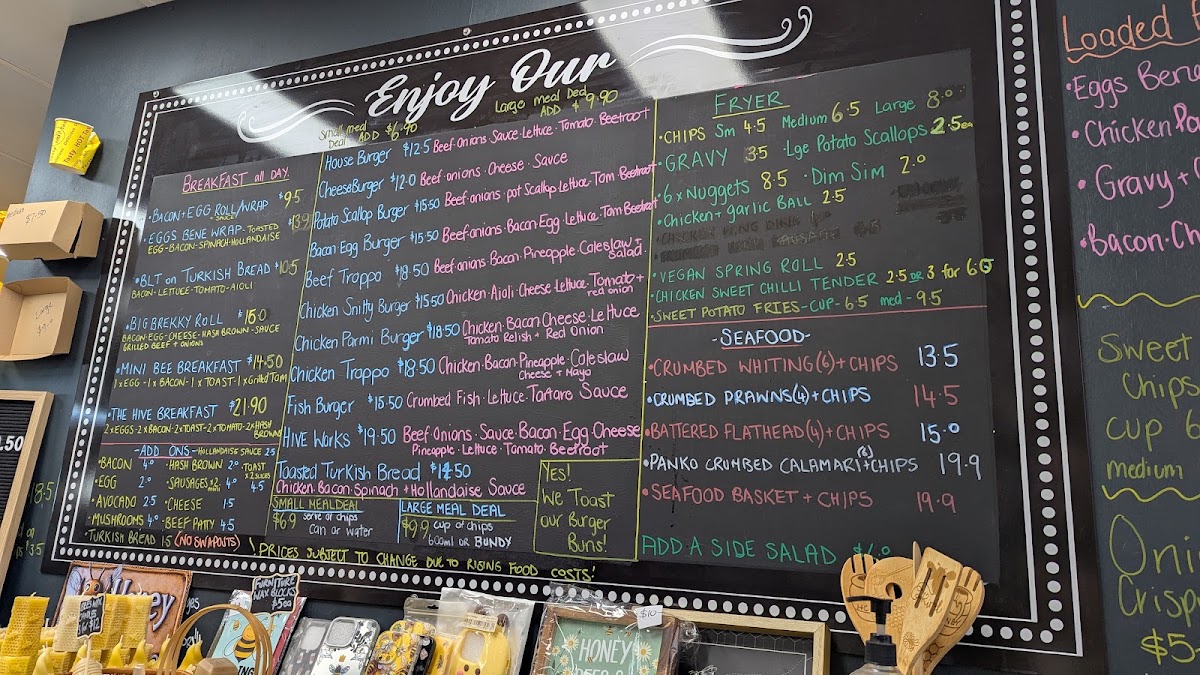 Enjoy Our
Small meal Deal ADD $6.90
Large meal Deal ADD $9.90
BREAKFAST all DAY
•BACON+EGG ROLL/WRAP $9.5
+SAUCE
•EGGS BENE WRAP-TOASTED $13.9
EGG-BACON-SPINACH-HOLLANDAISE
•BLT on TURKISH BREAD $10.5
BACON-LETTUCE-TOMATO-AIOLI
•BIG BREKKY ROLL $15.0
BACON-EGG-CHEESE-HASH BROWN-SAUCE
GRILLED BEEF + ONIONS
•MINI BEE BREAKFAST $14.50
1xEGG-1xBACON-1xTOAST-1xGrilled Tom
•THE HIVE BREAKFAST $21.90
2xEGGS-2xBACON-2xTOAST-2xTOMATO-2xHASH BROWN
-ADD ONS-
HOLLANDAISE SAUCE 2.5
•BACON 4.0 •HASH BROWN 2.0 •TOAST x2 SLICES 4.5
•EGG 2.0 •SAUSAGES x2 mini 4.0
•AVOCADO 2.5 •CHEESE 1.5
•MUSHROOMS 4.0 •BEEF PATTY 4.5
•TURKISH BREAD 1.5 (NO SWAPOUTS)
House Burger $12.5 Beef·onions·Sauce·Lettuce·Tomato·Beetroot
Cheese Burger $12.0 Beef·onions·Cheese·Sauce
Potato Scallop Burger $15.50 Beef·onions·pot Scallop·Lettuce·Tom·Beetroot
Bacon Egg Burger $15.50 Beef·onians·Bacon·Egg·Lettuce·Tom·Beetroot
Beef Trappo $18.50 Beef·onians·Bacon·Pineapple·Caleslaw
Salad
Chicken Snitty Burger $15.50 Chicken·Aioli·Cheese·Lettuce·Tomato+
red onion
Chicken Parmi Burger $18.50 Chicken·Bacon·Cheese·Lettuce
Tomato Relish + Red Onion
Chicken Trappo $18.50 Chicken·Bacon·Pineapple·Caleslaw
Cheese + Mayo
Fish Burger $15.50 Crumbed Fish·Lettuce·Tartare Sauce
Hive Works $19.50 Beef·Onions·Sauce·Bacon·Egg·Cheese
Pineapple·Lettuce·Tomato·Beetroot
Toasted Turkish Bread $14.50
Chicken·Bacon·Spinach + Hollandaise Sauce
SMALL MEAL DEAL
$6.9 serve of chips
Can or water
LARGE MEAL DEAL
$9.9 cup of chips
600ml OR BUNDY
Yes!
We Toast
our Burger
Buns!
! PRICES SUBJECT TO CHANGE DUE TO RISING FOOD COSTS!
FRYER
•CHIPS Sm 4.5 Medium 6.5 Large 8.0
•GRAVY 3.5 •Lge Potato Scallops 2.5ea
•6x Nuggets 8.5 •Dim Sim 2.0
•Chicken + garlic BALL 2.5
•VEGAN SPRING ROLL 2.5
•CHICKEN SWEET CHILLI TENDER 2.5 OR 3 for 6.0
•SWEET POTATO FRIES-CUP-6.5 med-9.5
-SEAFOOD-
•CRUMBED WHITING(6)+CHIPS 13.5
•CRUMBED PRAWNS(4)+CHIPS 14.5
•BATTERED FLATHEAD(4)+CHIPS 15.0
•PANKO CRUMBED CALAMARI(8)+CHIPS 19.9
•SEAFOOD BASKET + CHIPS 19.9
ADD A SIDE SALAD
Loaded
•Eggs Bene
•Chicken
•Gravy+
•Bacon·Ch
Sweet
Chips
cup 6
medium
Crisp
$5
FURNITURE
WAX BLOCKS
$5ea
$10
HONEY